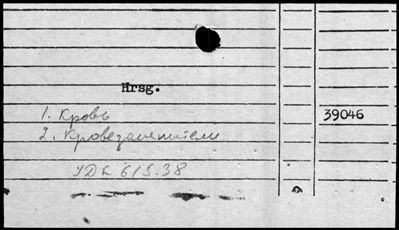 Hrsg.
1. Кровь
39046
2. Кровезаменители
УДК 615.38